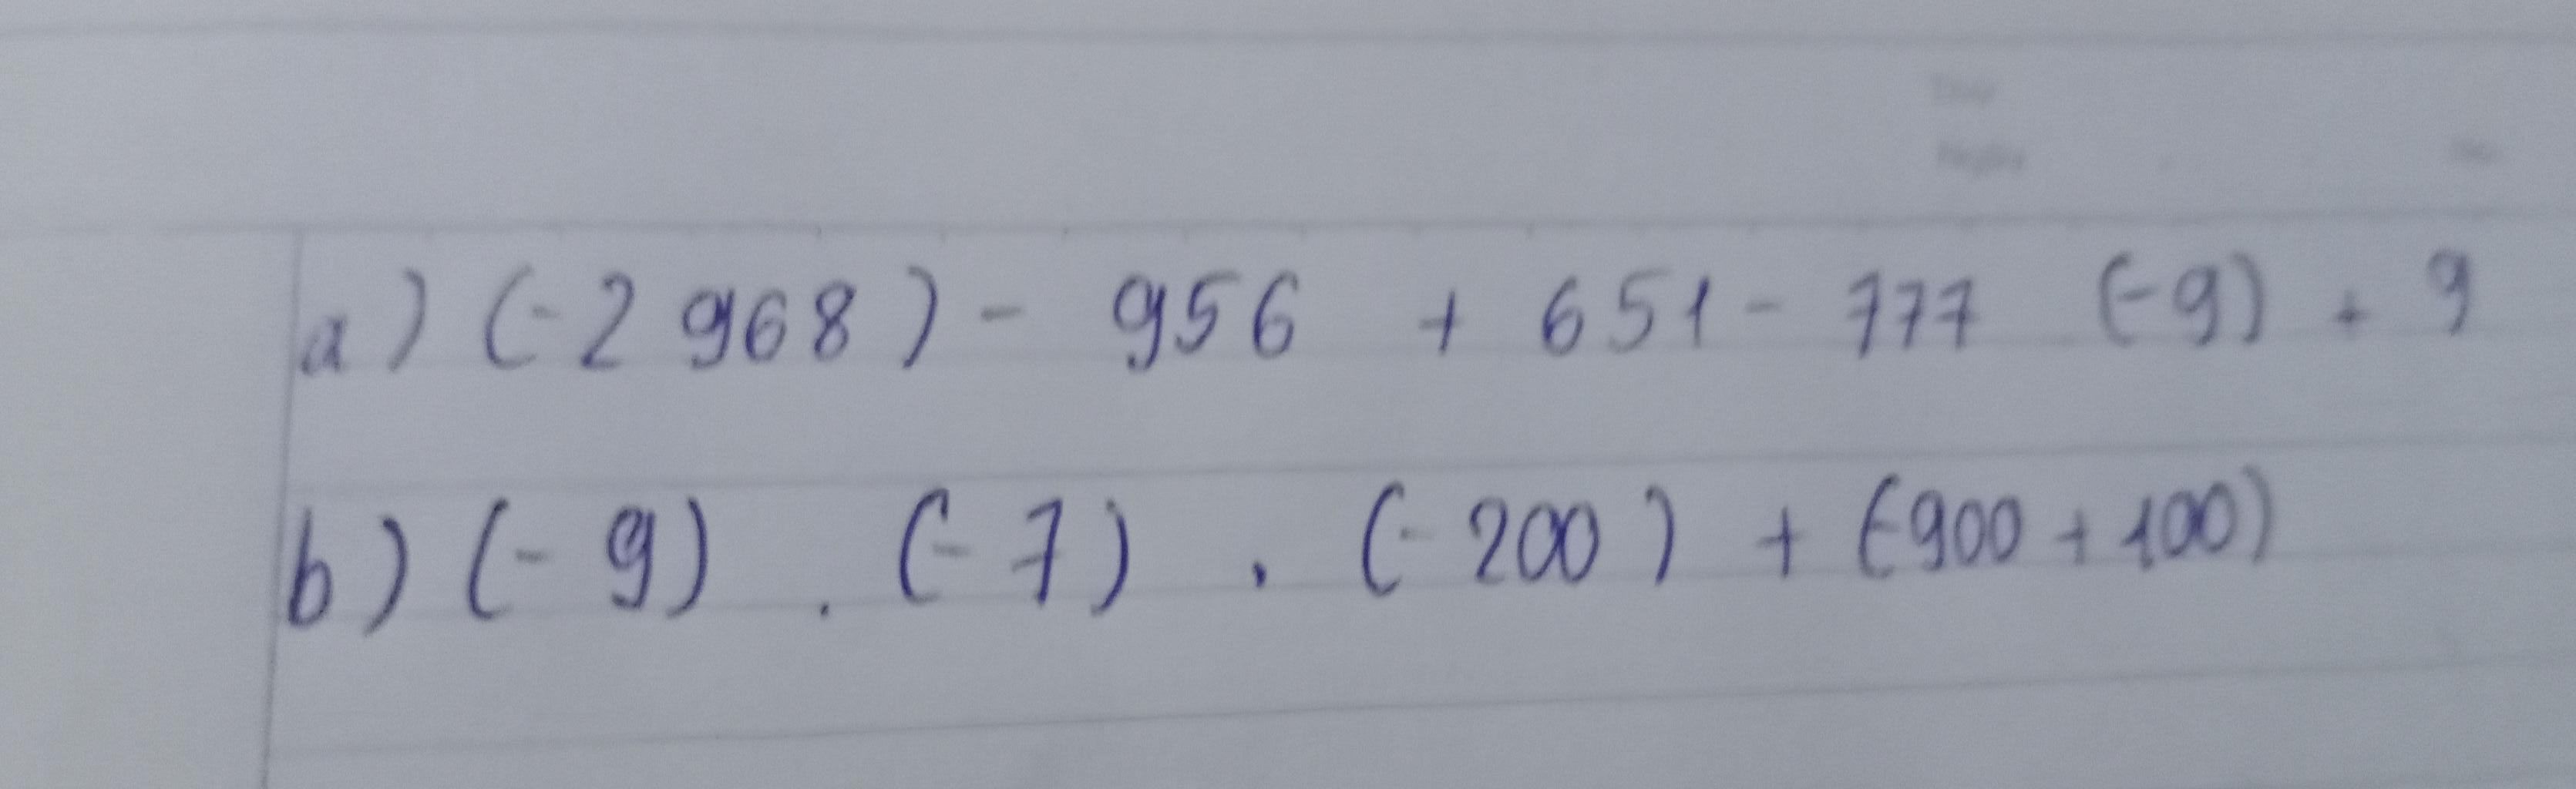 a) (-2 968) - 956 + 651 - 777 (-9) + 9
b) (- 9) . (- 7) . (- 200) + (-900 + 100)